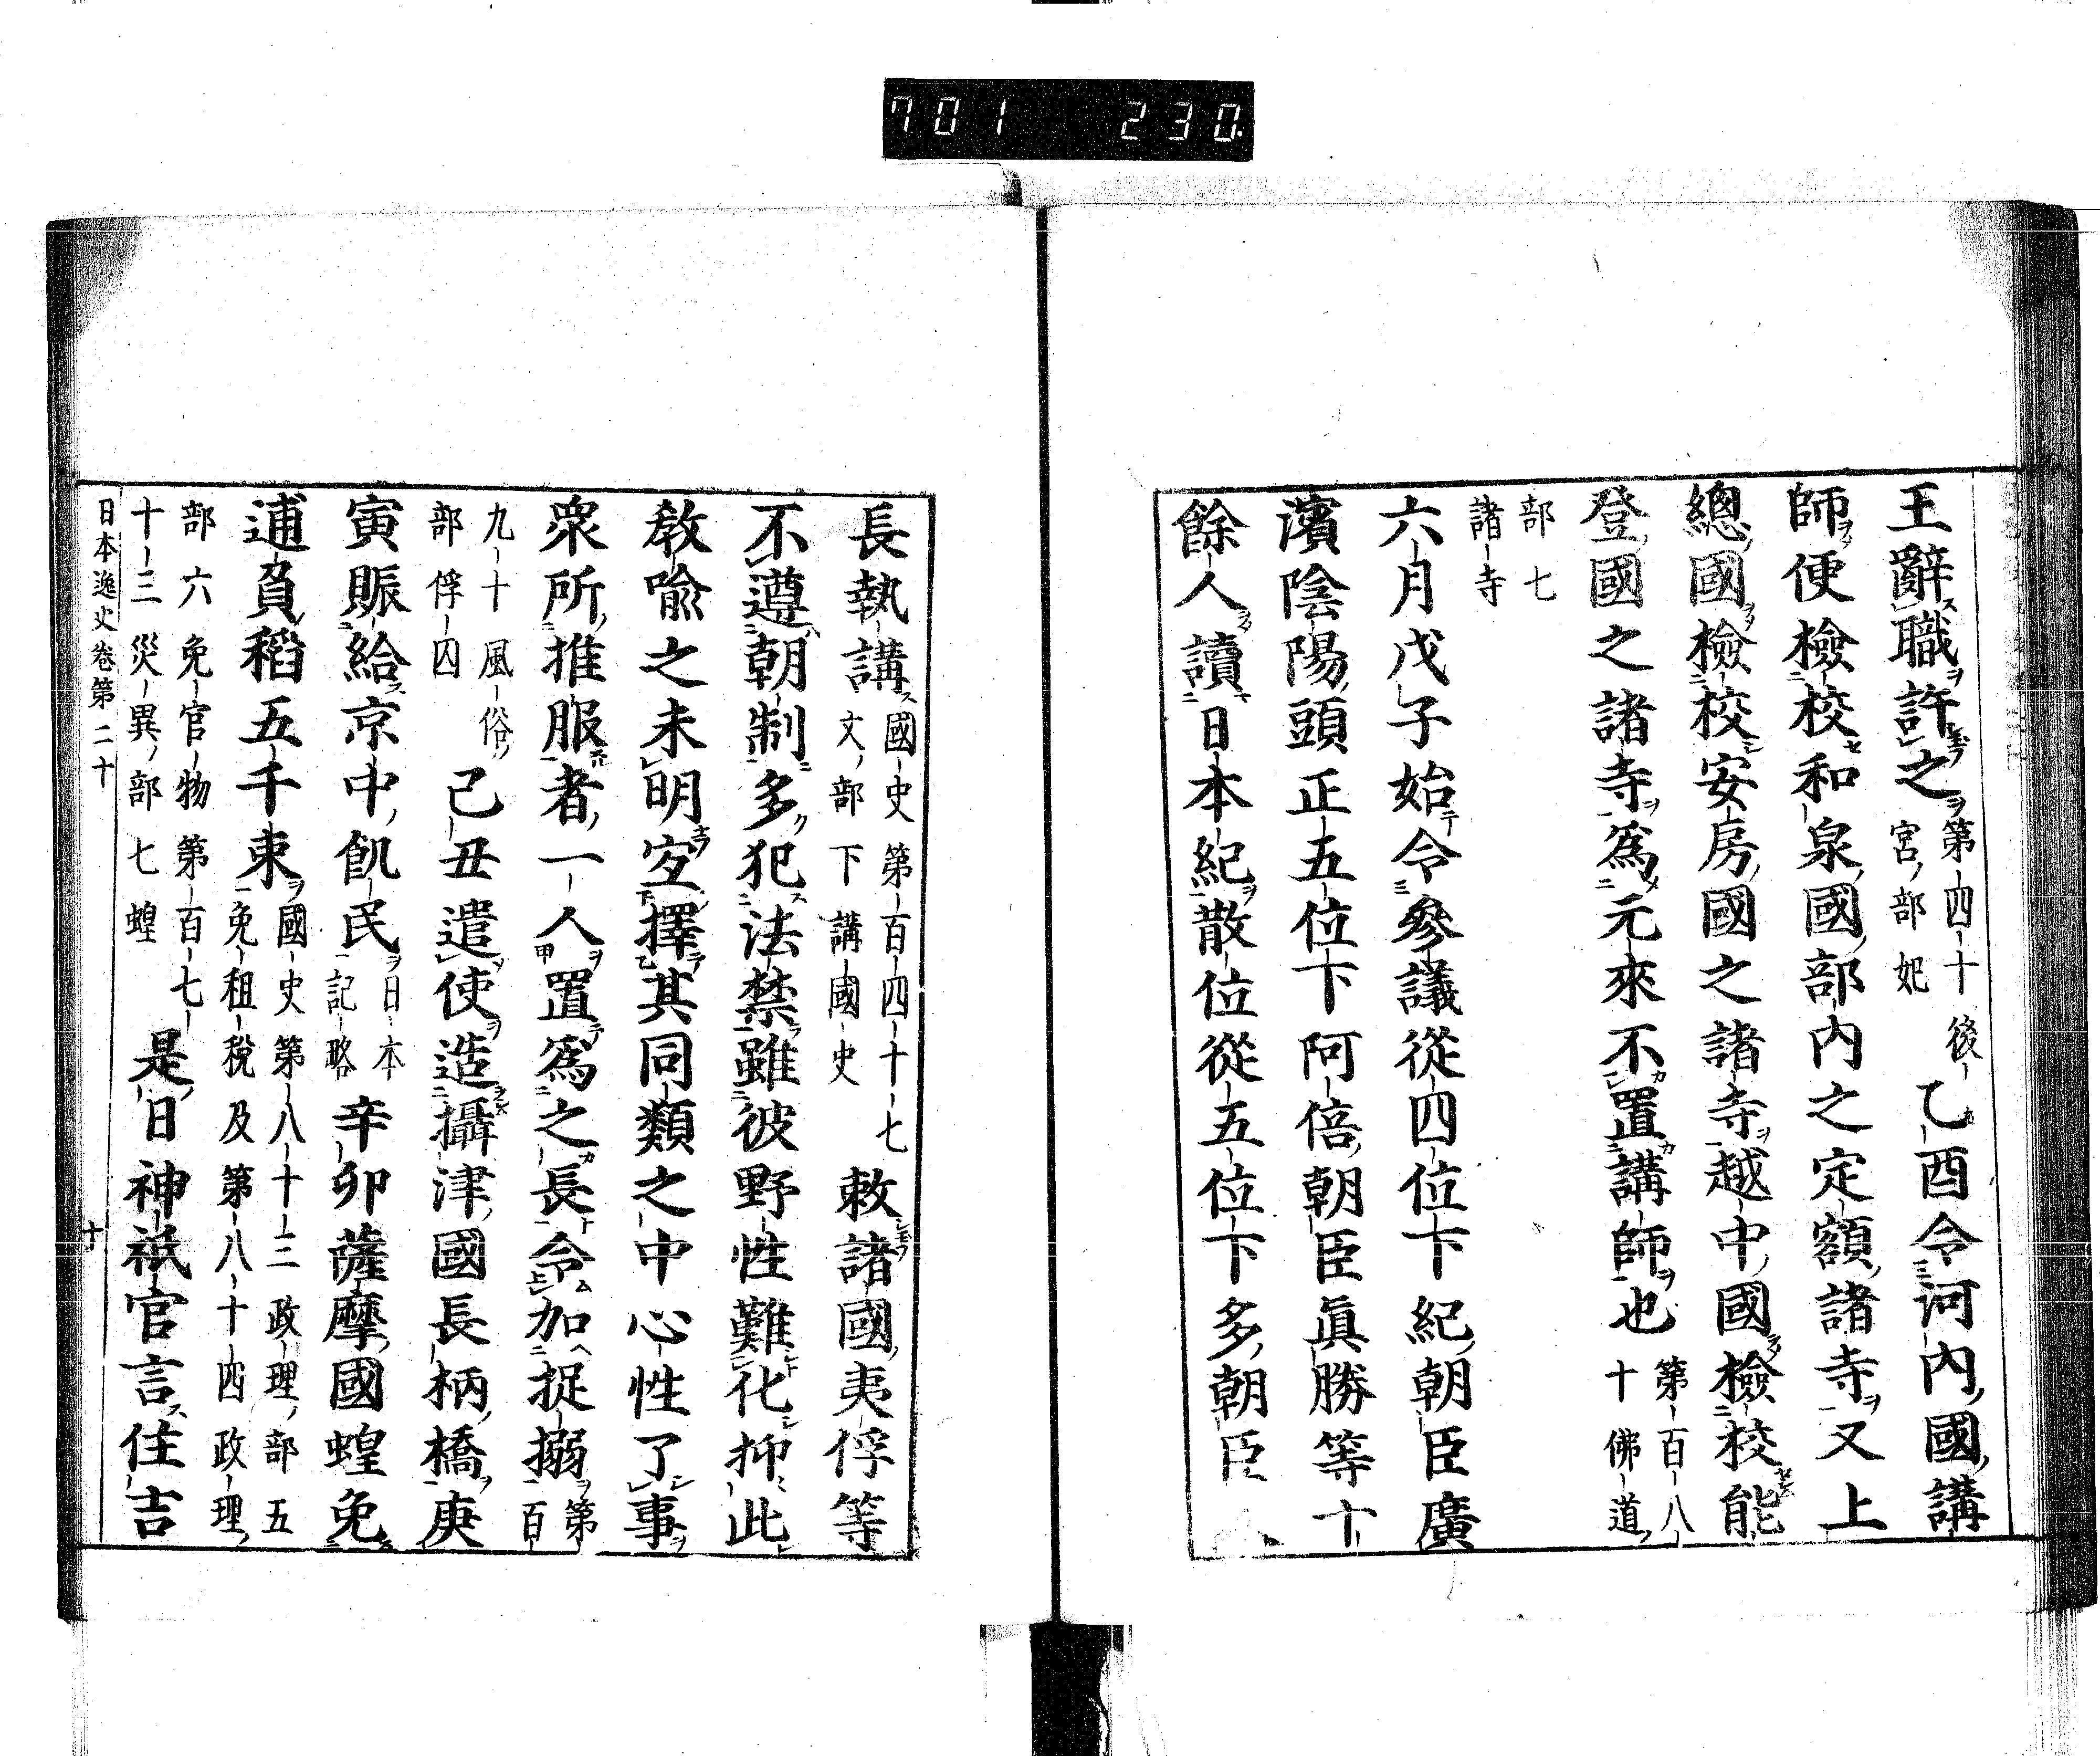 701 230
王辭職許之第四十後宮部妃乙酉令河内國講
師便檢校和泉國部内之定額諸寺又上
總國檢校安房國之諸寺越中國檢校能
登國之諸寺爲元來不置講師也第百八十佛道
部七諸寺
六月戊子始令參議從四位下紀朝臣廣
濱陰陽頭正五位下阿倍朝臣眞勝等十
餘人讀日本紀散位從五位下多朝臣
長執講國史第百四十七文部下講國史敕諸國夷俘等
不遵朝制多犯法禁雖彼野性難化抑此
教喩之未明宜擇其同類之中心性了事
衆所推服者一人置爲之長令加捉搦第百
九十風俗部俘囚己丑遣使造攝津國長柄橋庚
寅賑給京中飢民日本記略辛卯薩摩國蝗免
逋負稻五千束國史第八十三政理部五免租税及第八十四政理
部六免官物第百七十三災異部七蝗是日神祇官言住吉
日本逸史卷第二十
十